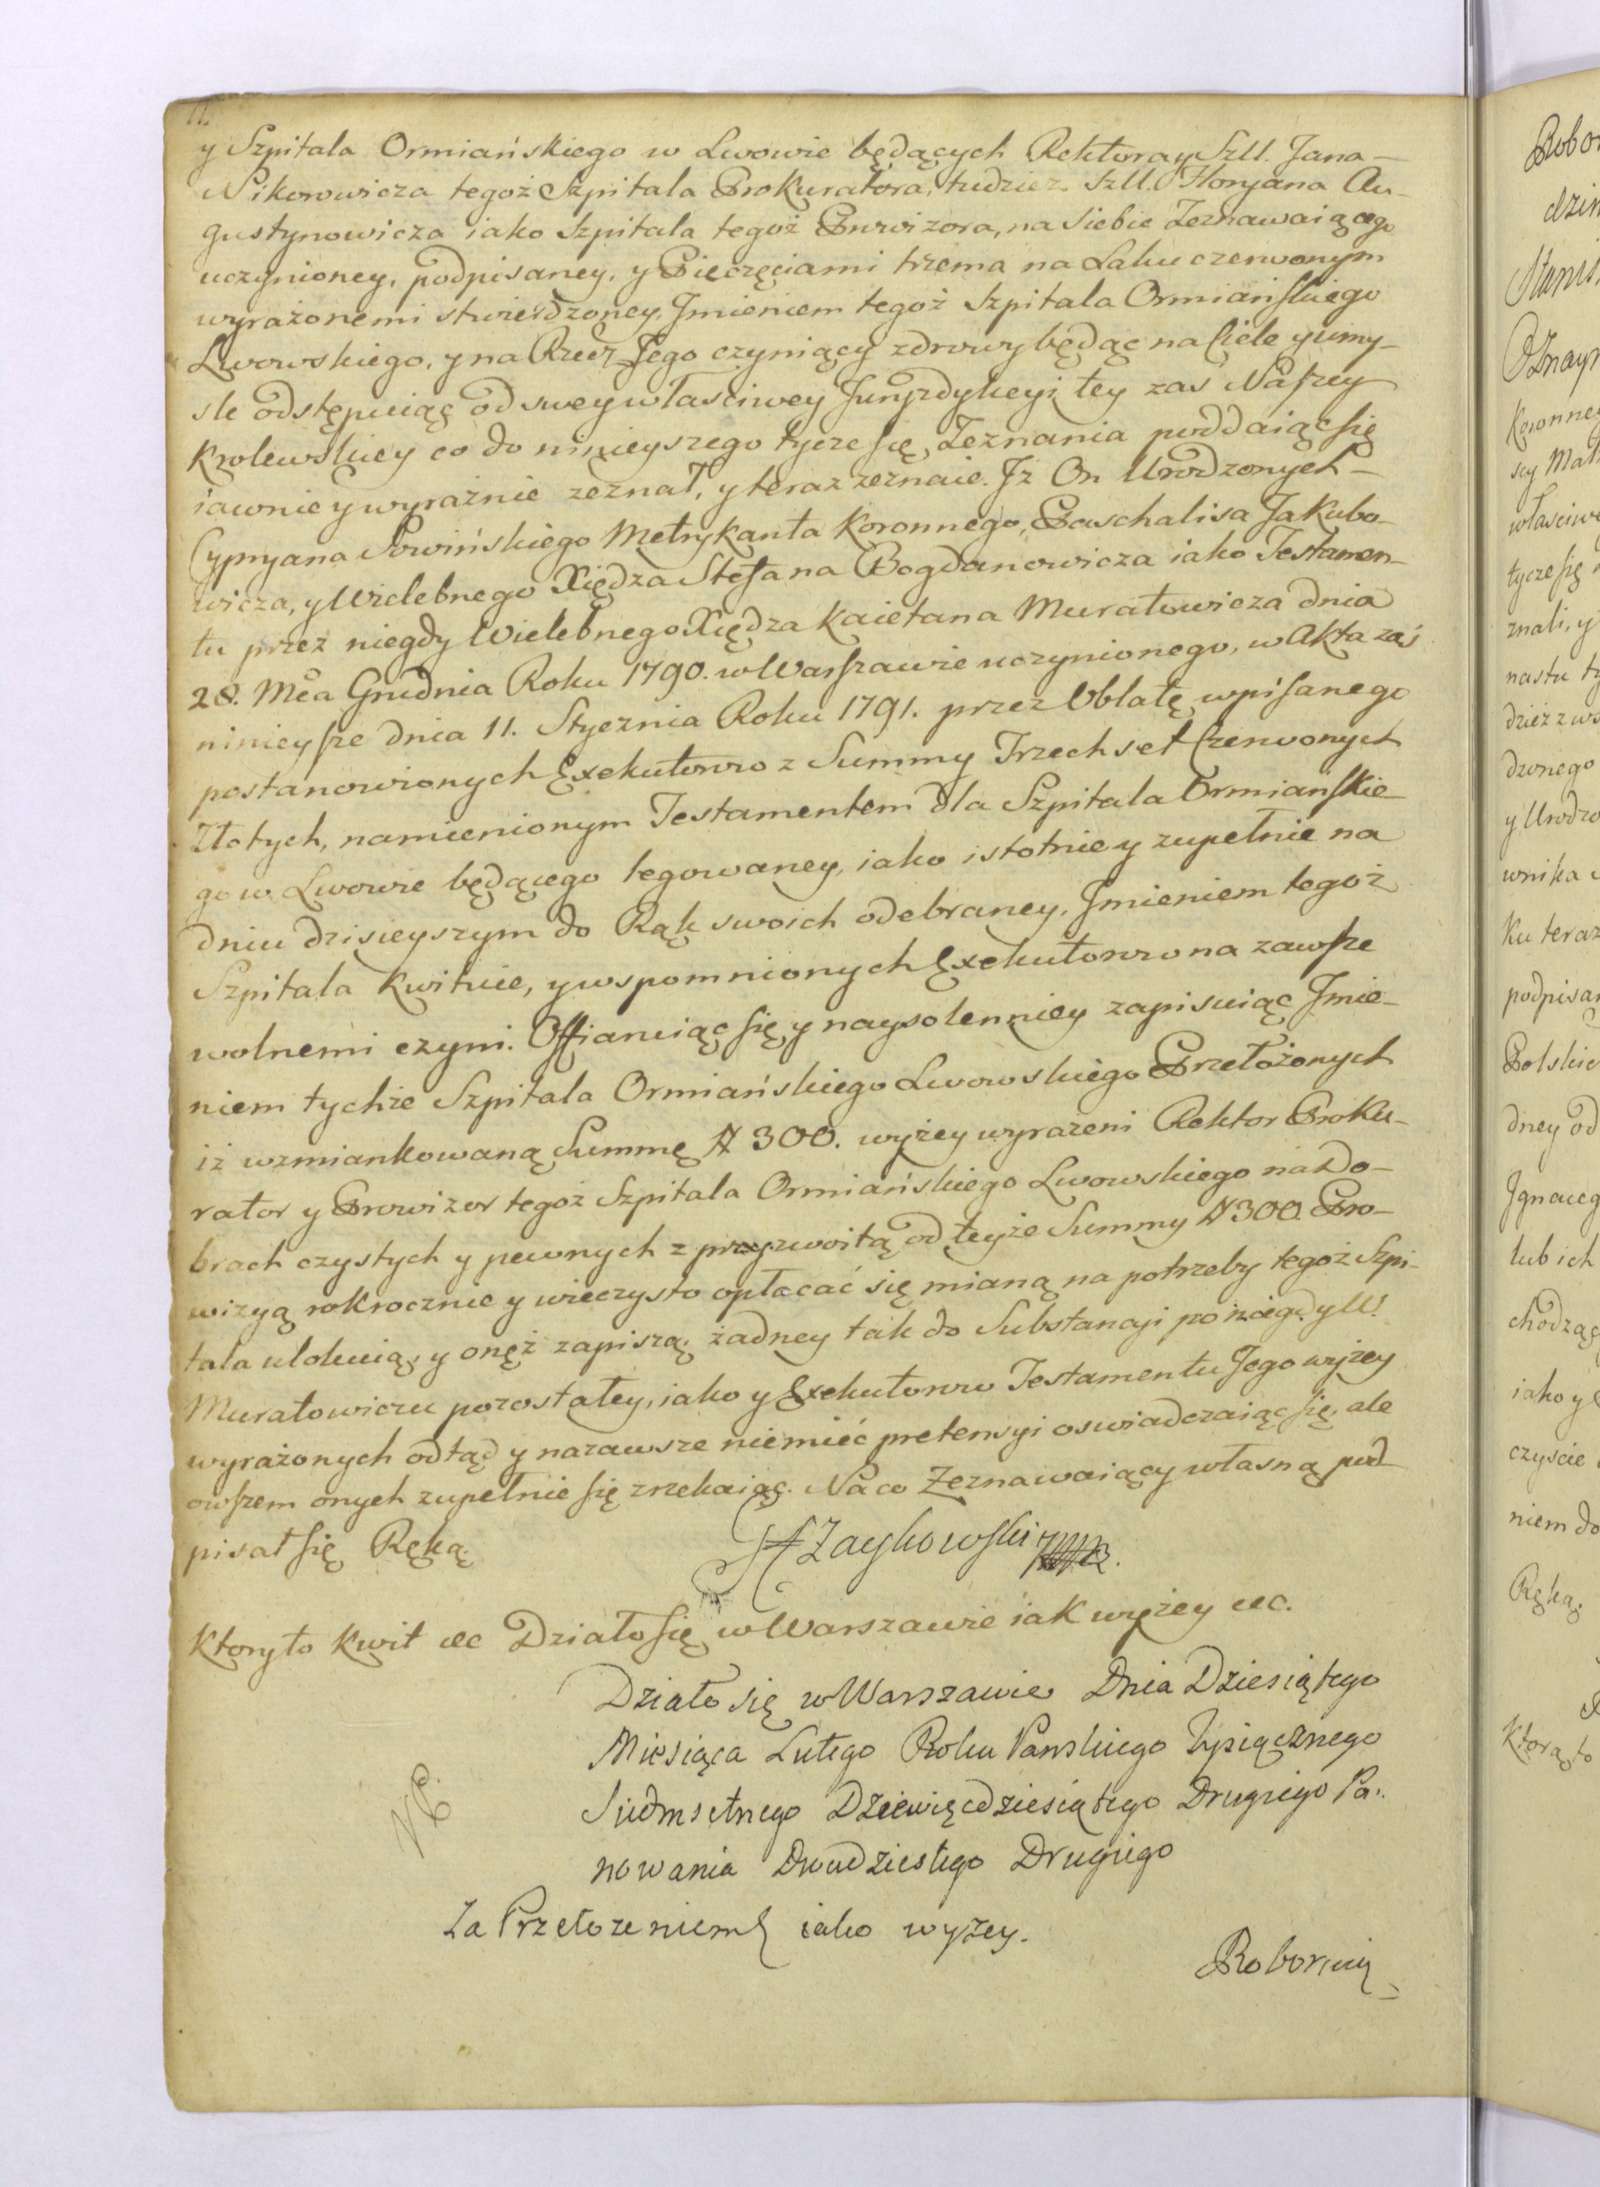 11.
y Szpitala Ormiańskiego w Lwowie będących Rektora y Szll. Jana
Nikorowicza tegoż Szpitala Prokuratora, tudzież Szll. Floryana Au-
gustynowicza iako Szpitala tegoż Prowizora, na siebie Zeznawaiącego
uczynioney, podpisaney, y Pieczęciami trzema na Laku czerwonym
wyrażonemi stwierdzoney, Jmieniem tegoż Szpitala Ormiańskiego
Lwowskiego, y na Rzecz Jego czyniący zdrowy będąc na Ciele y umy-
sle odstępuiąc od swey własciwey Juryzdykcyi tey zas Naszey
Krolewskiey co do ninieyszego tycze się Zeznania poddaiąc się
iawnie y wyraźnie zeznał, y teraz zeznaie. Jz On Urodzonych
Cypryana Słowińskiego Metrykanta Koronnego, Paschalisa Jakubo-
wicza, y Wielebnego Xiędza Stefana Bogdanowicza iako Testamen-
tu przez niegdy Wielebnego Xiędza Kaietana Muratowicza dnia
28. Mca Grudnia Roku 1790. w Warszawie uczynionego, w Akta zaś
ninieysze dnia 11. Stycznia Roku 1791. przez Oblatę wpisanego
postanowionych Exekutorow z Summy Trzechset Czerwonych
Złotych, namienionym Testamentem dla Szpitala Ormiańskie-
go w Lwowie będącego legowaney, iako istotnie y zupełnie na
dniu dzisieyszym do Rąk swoich odebraney, Jmieniem tegoż
Szpitala kwituie, y wspomnionych Exekutorow na zawsze
wolnemi czyni. Offiaruiąc się y naysolenniey zapisuiąc Jmie-
niem tychże Szpitala Ormiańskiego Lwowskiego Przełożonych
iż wzmiankowaną Summę # 300. wyżey wyrażeni Rektor Proku-
rator y Prowizor tegoż Szpitala Ormiańskiego Lwowskiego na Do-
brach czystych y pewnych z przyzwoitą od teyże Summy # 300. Pro-
wizyą rokrocznie y wieczysto opłacać się mianą na potrzeby tegoż Szpi-
tala ulokuią, y onęż zapiszą, żadney tak do Substancyi po niegdy W.
Muratowiczu pozostałey, iako y Exekutorow Testamentu Jego wyżey
wyrażonych odtąd y nazawsze niemieć pretensyi oswiadczaiąc się, ale
owszem onych zupełnie się zrzekaiąc. Na co Zeznawaiący własną pod-
pisał się Ręką.
Zaykowski
Ktory to kwit etc Działo się w Warszawie iak wyżey etc.
Działo się w Warszawie Dnia Dziesiątego
Miesiąca Lutego Roku Panskiego Tysiącznego
Siedmsetnego Dziewięćdziesiątego Drugiego Pa-
nowania Dwudziestego Drugiego
Za Przełożeniem iako wyżey.